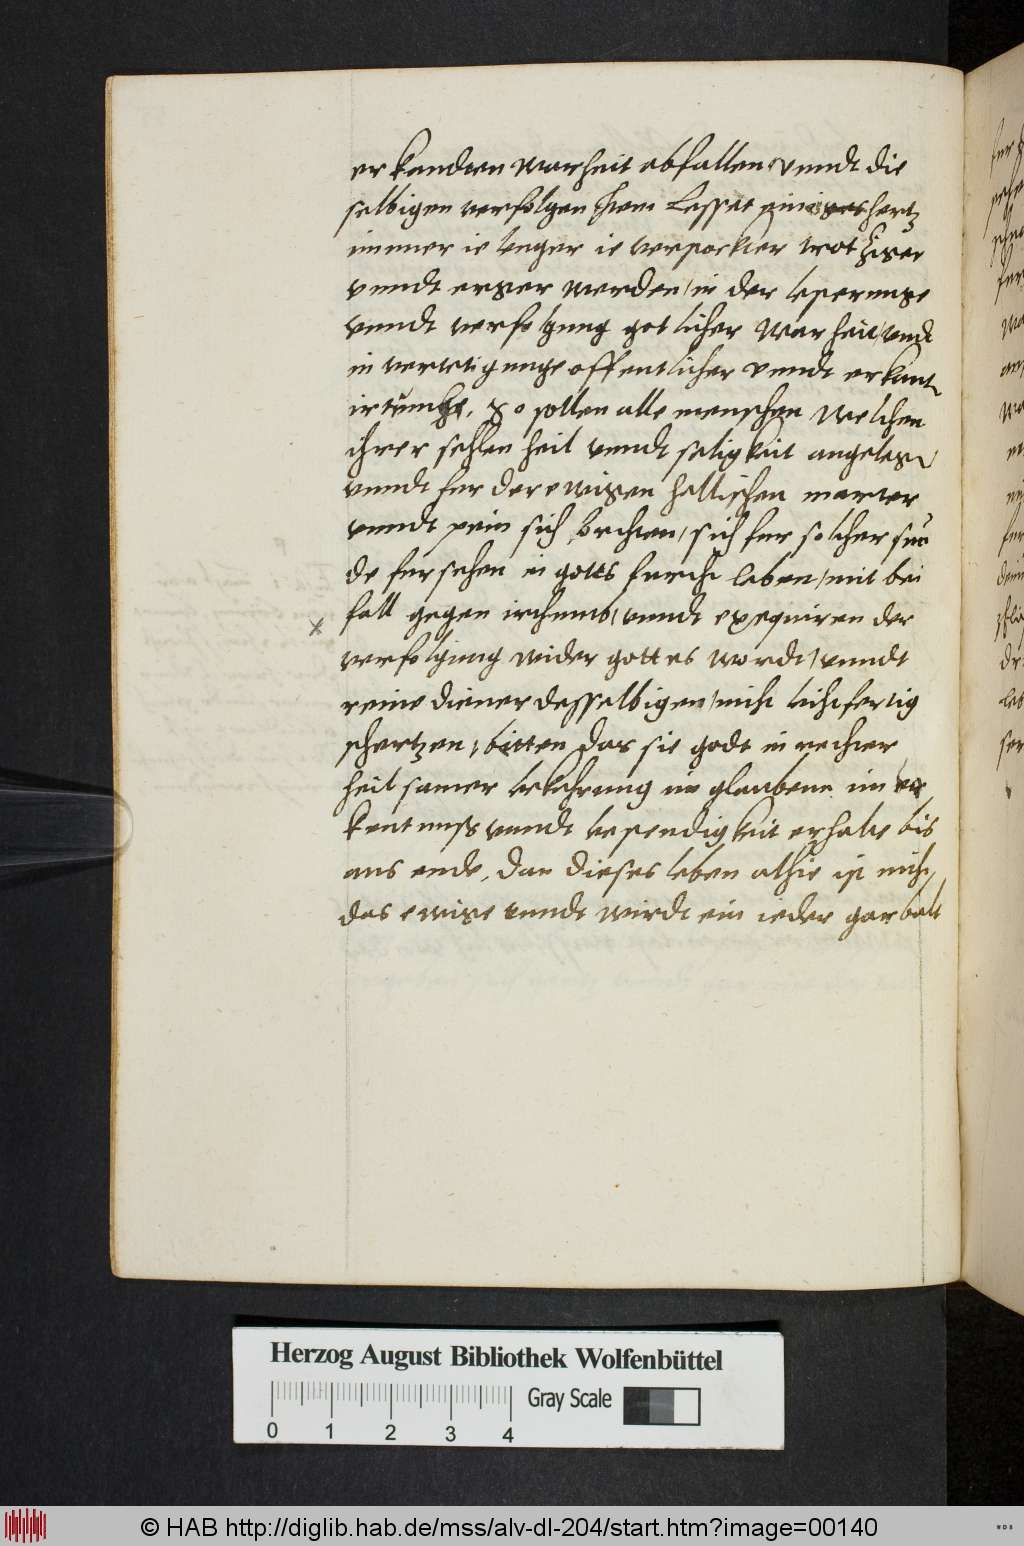 erkandten warheit abfallen, vnndt die
selbigen verfolgen ihren lesset ein hertz
immer ie lenger ie verstockter trotziger
vnndt erger werden / in der lesterunge
vnndt verfolgung gotlicher warheit / vndt
in vertetigunge offentlicher vnndt erkant
irtumbs, So sollen alle menschen welchen
ihrer sehlen heil vnndt seligkeit angelegen /
vnndt fur der ewigen hellischen marter
vnndt pein sich forchten / sich fur solcher sun
de fursehen in gottes furcht leben / mit bei
fall gegen irthumb / vnndt exequiren der
verfolgung wider gottes wordt / vnndt
reine diener desselbigen / nicht leichtfertig
schertzen, bitten das sie godt in rechter
heilsamer bekehrung im glauben im er
kentnuss vnndt bestendigkeit erhalte bis
ans ende, dan dieses leben alhie ist nicht
das ewige vnndt wirdt ein ieder gar balt
Herzog August Bibliothek Wolfenbüttel
0 1 2 3 4 Gray Scale
© HAB http://diglib.hab.de/mss/alv-dl-204/start.htm?image=00140